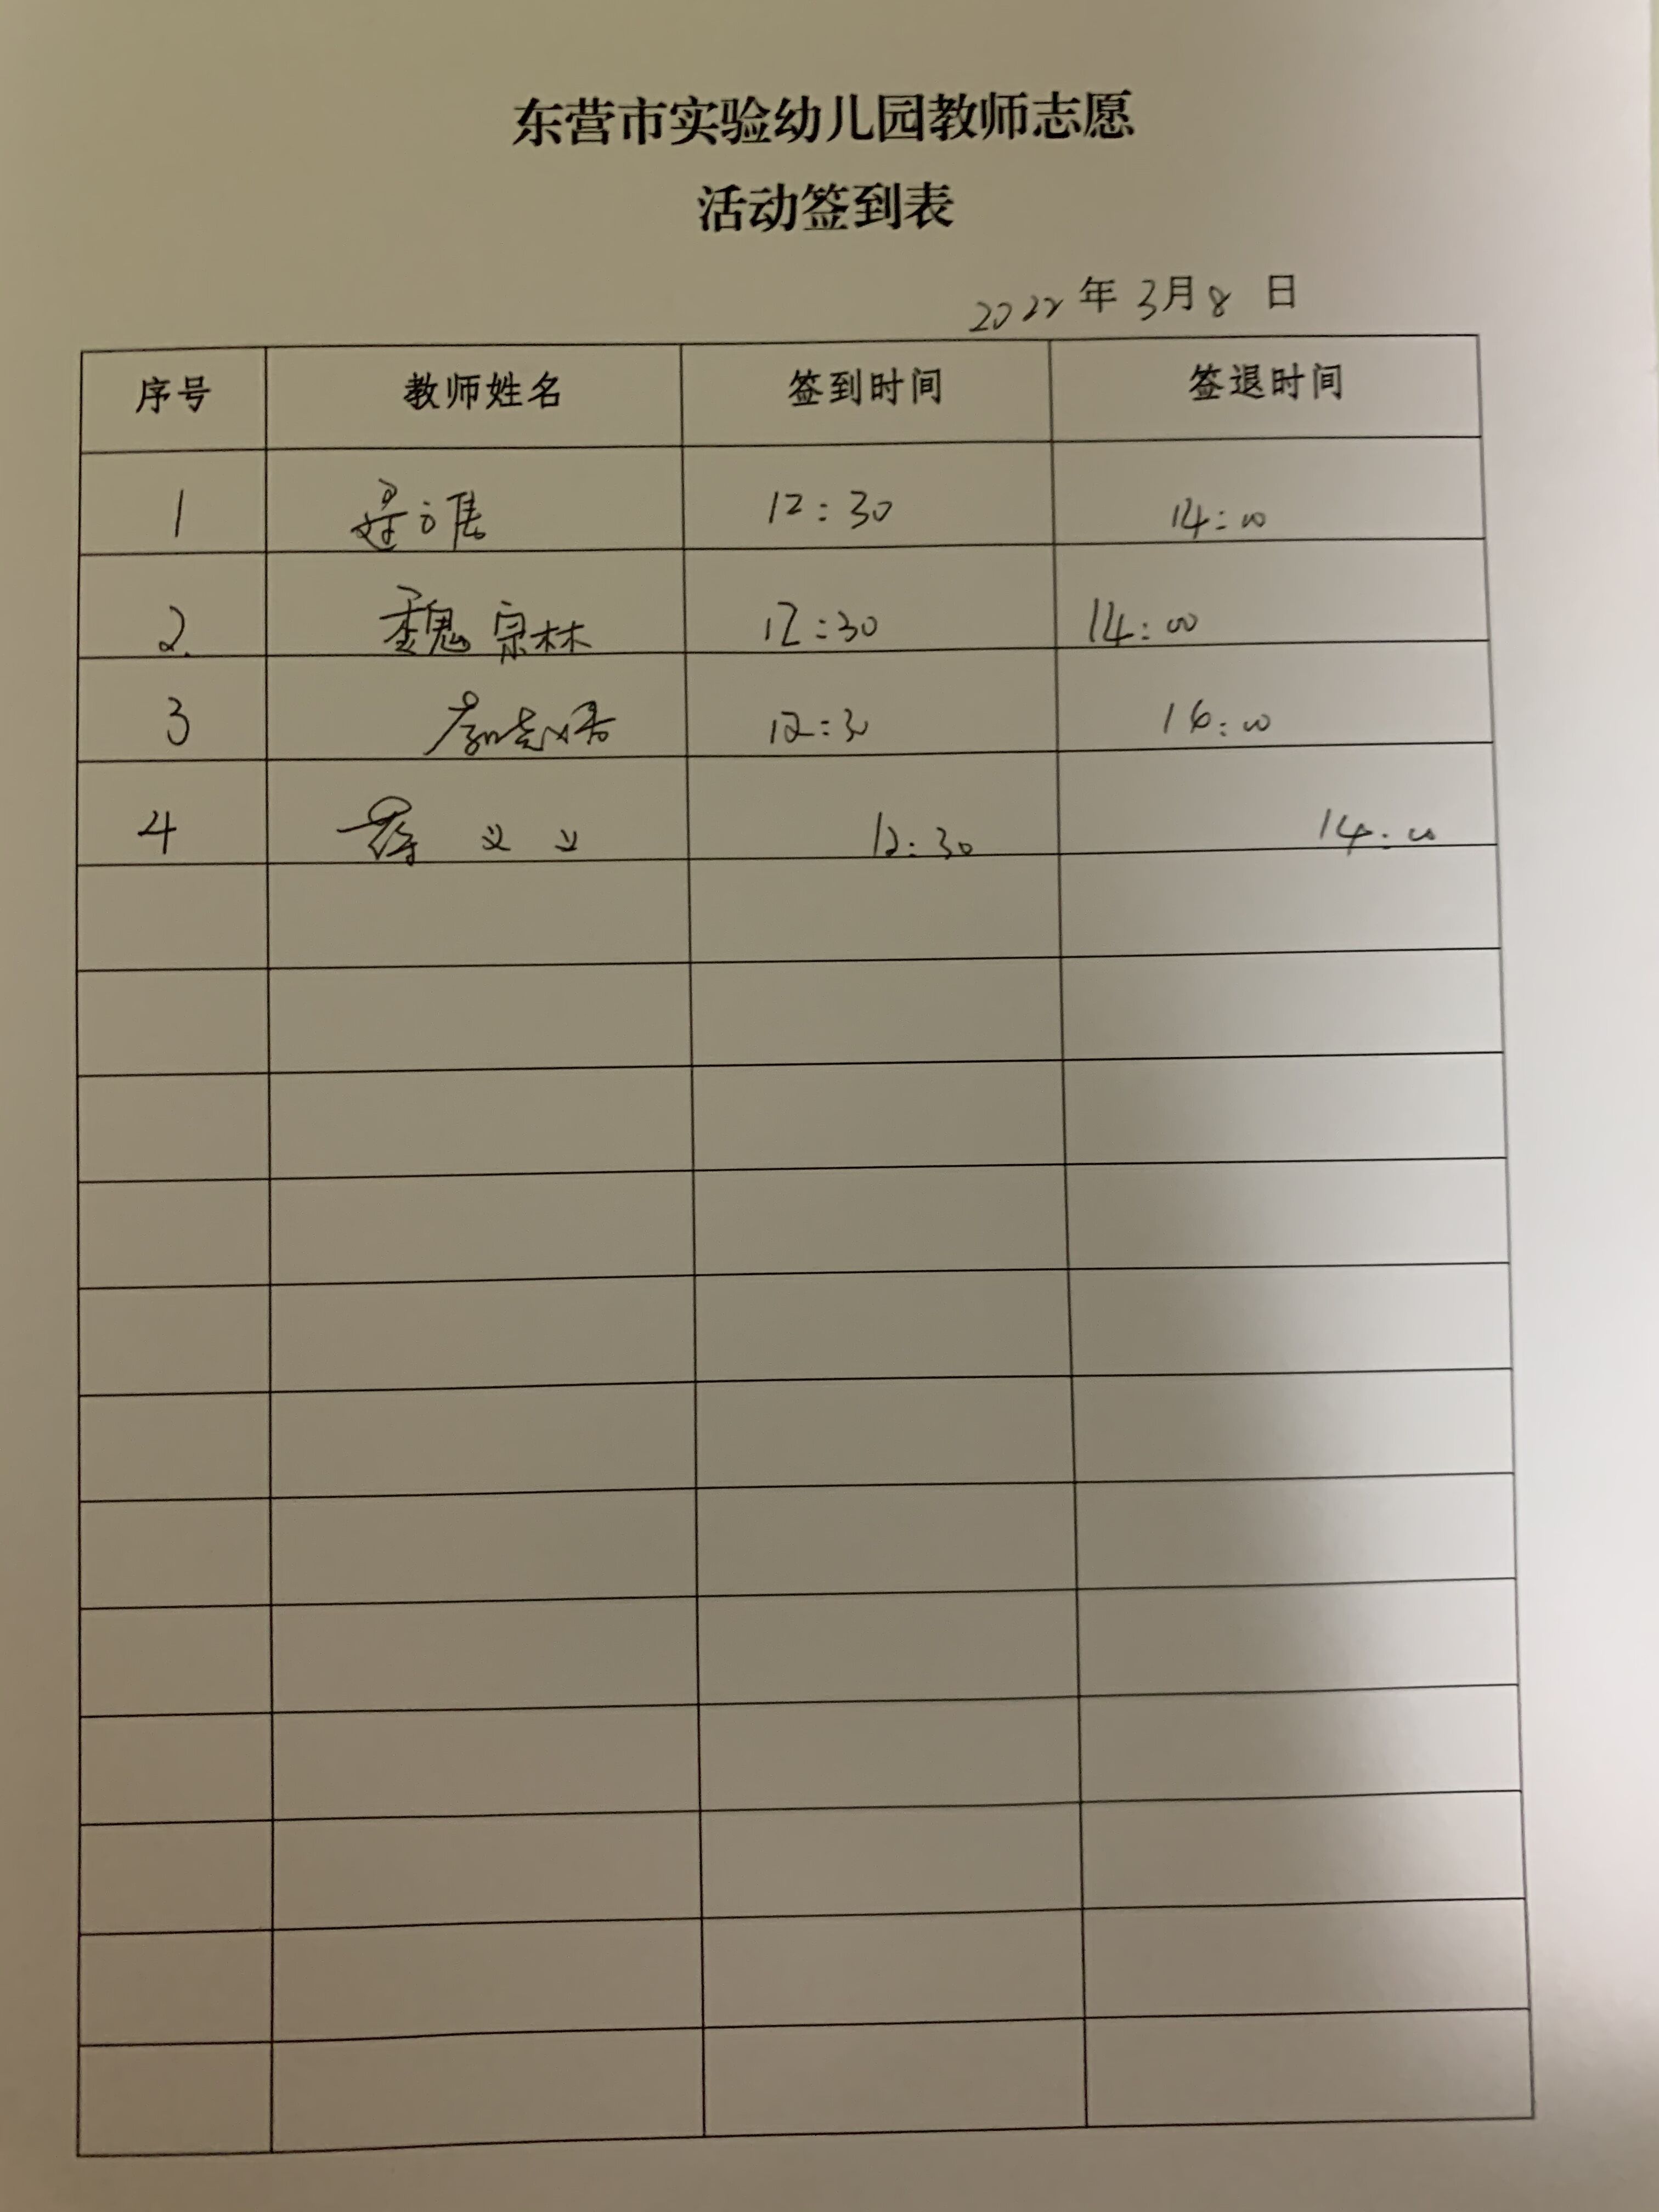 东营市实验幼儿园教师志愿
活动签到表
2022年3月8日
序号 教师姓名 签到时间 签退时间
1 12:30 14:00
2. 魏宗林 12:30 14:00
3 12:30 16:00
4 薛义义 12:30 14:00